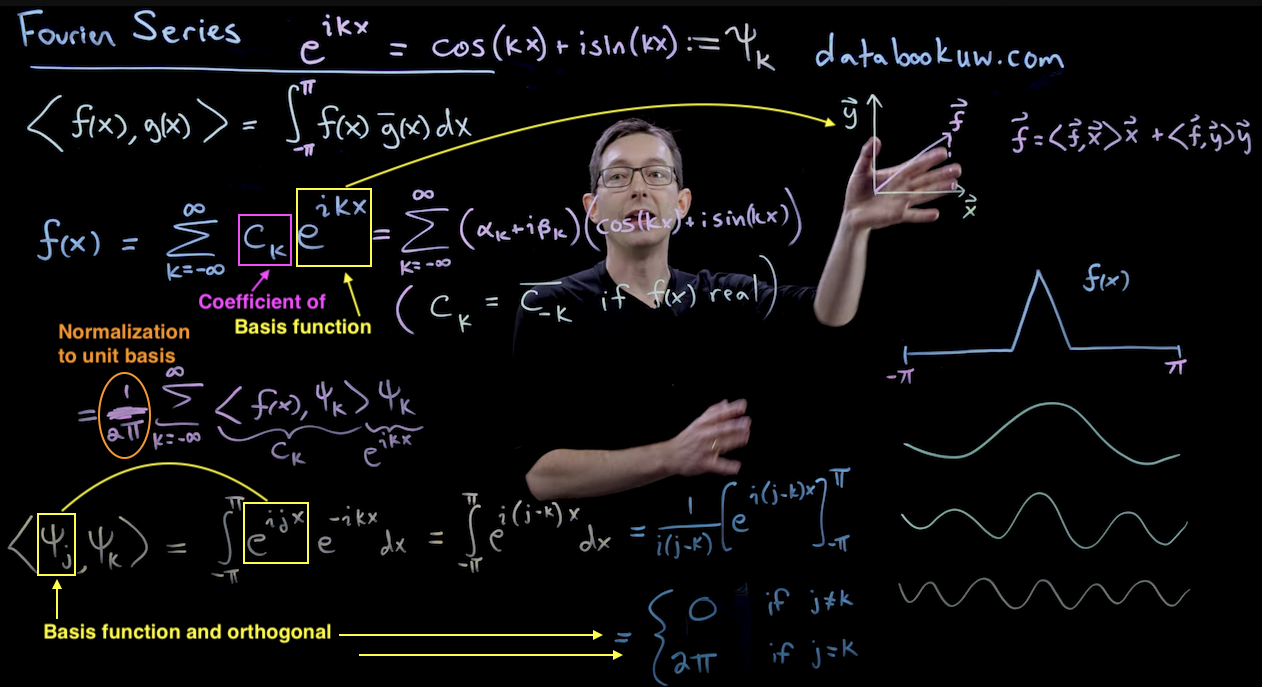 Fourier Series
e^{ikx} = cos(kx) + i sin(kx) := ψ_k
databookuw.com
⟨f(x), g(x)⟩ = ∫_{-π}^{π} f(x) g̅(x) dx
y⃗
f⃗
x⃗
f⃗ = ⟨f⃗, x⃗⟩x⃗ + ⟨f⃗, y⃗⟩y⃗
f(x) = ∑_{k=-∞}^{∞} C_k e^{ikx} = ∑_{k=-∞}^{∞} (α_k + iβ_k)(cos(kx) + i sin(kx))
Coefficient of
Basis function
(C_k = \overline{C_{-k}} if f(x) real)
f(x)
-π
π
Normalization
to unit basis
= 1/2π ∑_{k=-∞}^{∞} ⟨f(x), ψ_k⟩ ψ_k
C_k
e^{ikx}
⟨ψ_j, ψ_k⟩ = ∫_{-π}^{π} e^{ijx} e^{-ikx} dx = ∫_{-π}^{π} e^{i(j-k)x} dx = 1/i(j-k) [e^{i(j-k)x}]_{-π}^{π}
Basis function and orthogonal
= { 0 if j≠k
2π if j=k